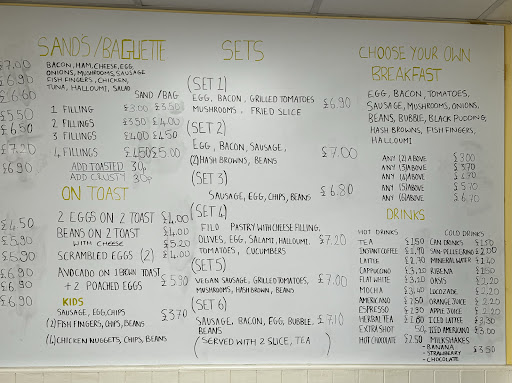 SANDS/BAGUETTE
BACON, HAM, CHEESE, EGG,
ONIONS, MUSHROOMS, SAUSAGE
FISH FINGERS, CHICKEN,
TUNA, HALLOUMI, SALAD
SAND / BAG
1 FILLING £3.00 £3.50
2 FILLINGS £3.50 £4.00
3 FILLINGS £4.00 £4.50
4 FILLINGS £4.50 £5.00
ADD TOASTED 30p
ADD CRUSTY 30p
ON TOAST
2 EGGS ON 2 TOAST £4.00
BEANS ON 2 TOAST £4.00
WITH CHEESE £5.20
SCRAMBLED EGGS (2) £4.00
AVOCADO ON 1 BROWN TOAST
+ 2 POACHED EGGS £5.90
KIDS
SAUSAGE, EGG, CHIPS £3.70
(2) FISH FINGERS, CHIPS, BEANS
(4) CHICKEN NUGGETS, CHIPS, BEANS
£7.00
£6.90
£6.60
£5.50
£6.50
£7.20
£6.90
£4.50
£5.90
£5.90
£6.90
£6.90
£6.90
SETS
(SET 1)
EGG, BACON, GRILLED TOMATOES £6.90
MUSHROOMS, FRIED SLICE
(SET 2)
EGG, BACON, SAUSAGE, £7.00
(2) HASH BROWNS, BEANS
(SET 3)
SAUSAGE, EGG, CHIPS, BEANS £6.80
(SET 4)
FILO PASTRY WITH CHEESE FILLING,
OLIVES, EGG, SALAMI, HALLOUMI, £7.20
TOMATOES, CUCUMBERS
(SET 5)
VEGAN SAUSAGE, GRILLED TOMATOES, £7.00
MUSHROOMS, HASH BROWN, BEANS
(SET 6)
SAUSAGE, BACON, EGG, BUBBLE, £7.10
BEANS
(SERVED WITH 2 SLICE, TEA)
CHOOSE YOUR OWN
BREAKFAST
EGG, BACON, TOMATOES,
SAUSAGE, MUSHROOMS, ONIONS,
BEANS, BUBBLE, BLACK PUDDING,
HASH BROWNS, FISH FINGERS,
HALLOUMI
ANY (2) ABOVE £3.00
ANY (3) ABOVE £3.70
ANY (4) ABOVE £4.70
ANY (5) ABOVE £5.70
ANY (6) ABOVE £6.70
DRINKS
HOT DRINKS
TEA £1.50
INSTANT COFFEE £1.90
LATTE £2.70
CAPPUCCINO £3.10
FLAT WHITE £3.10
MOCHA £3.40
AMERICANO £2.50
ESPRESSO £1.30
HERBAL TEA £1.80
EXTRA SHOT 50
HOT CHOCOLATE £2.50
COLD DRINKS
CAN DRINKS £1.50
SAN-PELLEGRINO £2.00
MINERAL WATER £1.40
RIBENA £1.50
OASIS £2.20
LUCOZADE £2.20
ORANGE JUICE £2.20
APPLE JUICE £2.20
ICED LATTE £3.00
ICED AMERICANO £3.00
MILKSHAKES
- BANANA
- STRAWBERRY £3.50
- CHOCOLATE